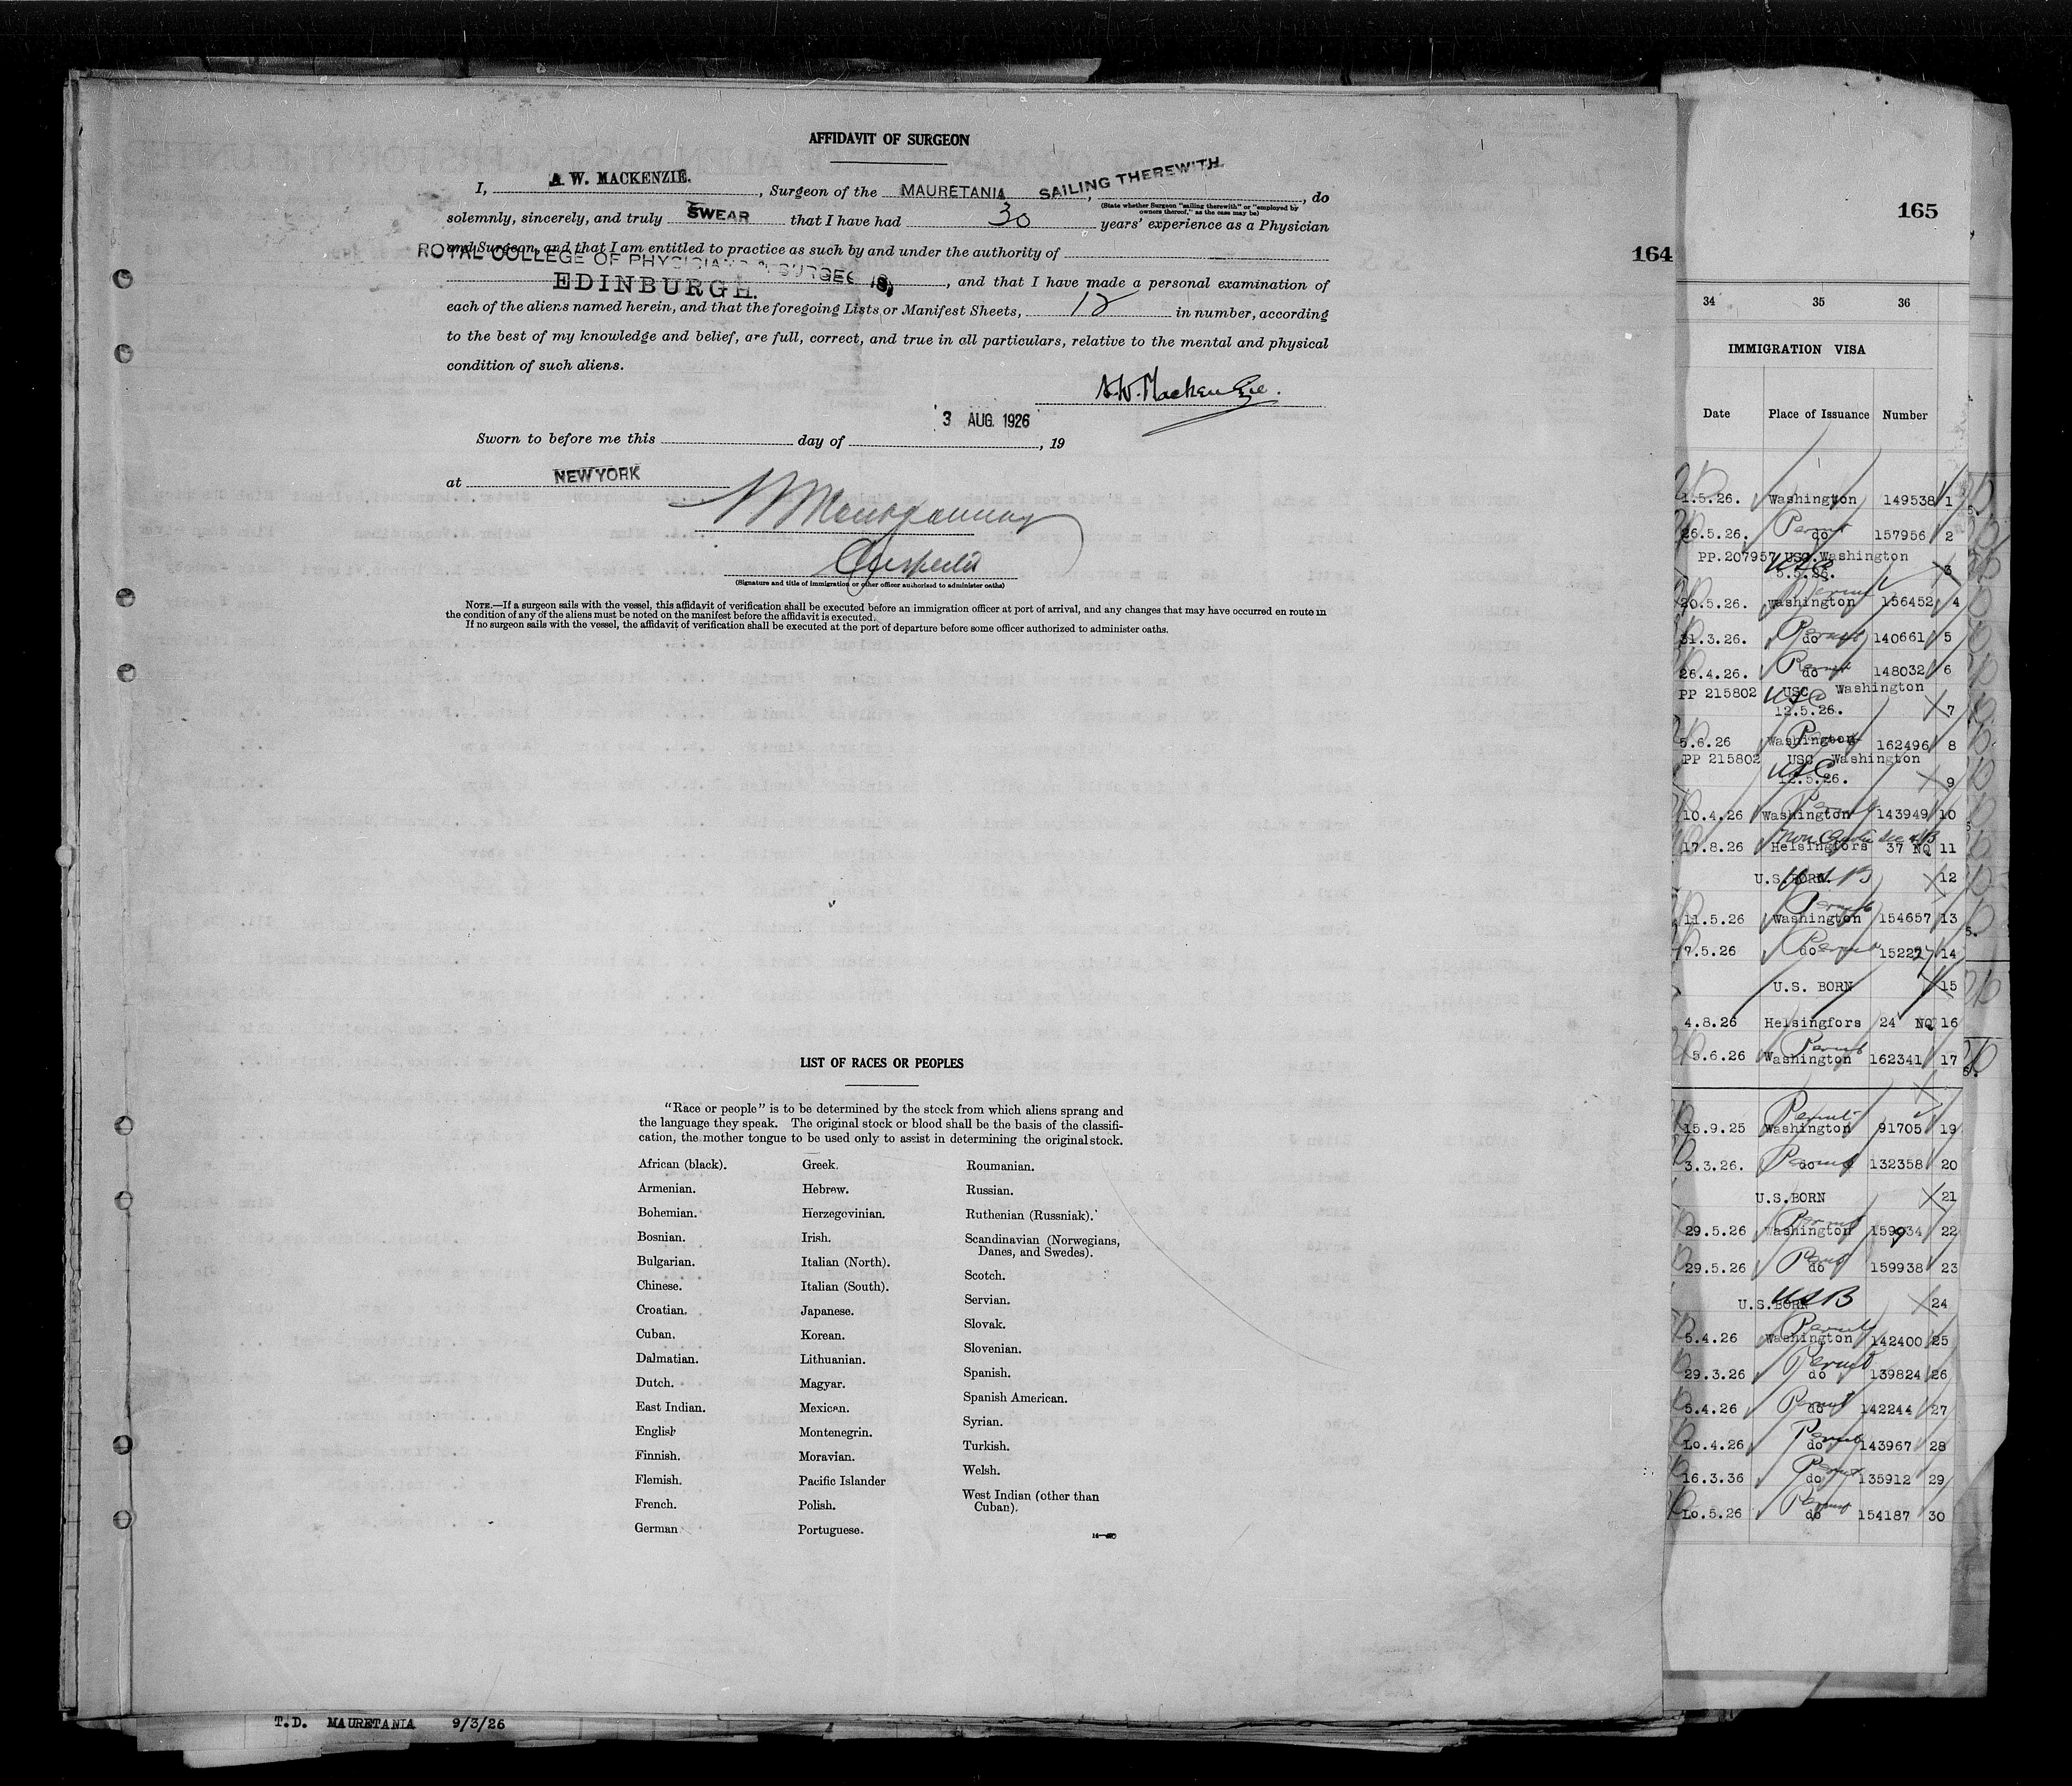 AFFIDAVIT OF SURGEON
I, A. W. MACKENZIE. , Surgeon of the MAURETANIA , SAILING THEREWITH. , do
(State whether Surgeon "sailing therewith" or "employed by
owners thereof," as the case may be)
solemnly, sincerely, and truly SWEAR that I have had 30 years' experience as a Physician
and Surgeon, and that I am entitled to practice as such by and under the authority of
ROYAL COLLEGE OF PHYSICIANS & SURGEONS,
EDINBURGH. , and that I have made a personal examination of
each of the aliens named herein, and that the foregoing Lists or Manifest Sheets, 12 in number, according
to the best of my knowledge and belief, are full, correct, and true in all particulars, relative to the mental and physical
condition of such aliens.
A.W. Mackenzie.
3 AUG. 1926
Sworn to before me this day of , 19
at NEW YORK
Montgomery
(Signature and title of immigration or other officer authorized to administer oaths)
NOTE.—If a surgeon sails with the vessel, this affidavit of verification shall be executed before an immigration officer at port of arrival, and any changes that may have occurred en route in
the condition of any of the aliens must be noted on the manifest before the affidavit is executed.
If no surgeon sails with the vessel, the affidavit of verification shall be executed at the port of departure before some officer authorized to administer oaths.
LIST OF RACES OR PEOPLES
"Race or people" is to be determined by the stock from which aliens sprang and
the language they speak. The original stock or blood shall be the basis of the classifi-
cation, the mother tongue to be used only to assist in determining the original stock.
African (black).
Armenian.
Bohemian.
Bosnian.
Bulgarian.
Chinese.
Croatian.
Cuban.
Dalmatian.
Dutch.
East Indian.
English
Finnish.
Flemish.
French.
German
Greek.
Hebrew.
Herzegovinian.
Irish.
Italian (North).
Italian (South).
Japanese.
Korean.
Lithuanian.
Magyar.
Mexican.
Montenegrin.
Moravian.
Pacific Islander
Polish.
Portuguese.
Roumanian.
Russian.
Ruthenian (Russniak).
Scandinavian (Norwegians,
Danes, and Swedes).
Scotch.
Servian.
Slovak.
Slovenian.
Spanish.
Spanish American.
Syrian.
Turkish.
Welsh.
West Indian (other than
Cuban).
T.D. MAURETANIA 9/3/26
164
165
34 35 36
IMMIGRATION VISA
Date Place of Issuance Number
1.5.26. Washington 149538 1
26.5.26. Permit do 157956 2
PP.207957 USC Washington
USC 5.5.26. 3
20.5.26. Permit Washington 156452 4
31.3.26. Permit do 140661 5
26.4.26. Permit do 148032 6
PP 215802 USC Washington
USC 12.5.26. 7
5.6.26 Permit Washington 162496 8
PP 215802 USC Washington
USC 12.5.26. 9
10.4.26 Permit Washington 143949 10
17.8.26 Helsingfors 37 NQ 11
U.S.BORN. USB 12
11.5.26 Permit Washington 154657 13
7.5.26 Permit do 15227 14
U.S. BORN 15
4.8.26 Helsingfors 24 NQ 16
5.6.26 Permit Washington 162341 17
15.9.25 Permit Washington 91705 19
3.3.26. Permit do 132358 20
U.S.BORN 21
29.5.26 Permit Washington 159934 22
29.5.26 Permit do 159938 23
U.S.BORN USB 24
5.4.26 Permit Washington 142400 25
29.3.26 Permit do 139824 26
5.4.26 Permit do 142244 27
Lo.4.26 Permit do 143967 28
16.3.36 Permit do 135912 29
Lo.5.26 Permit do 154187 30